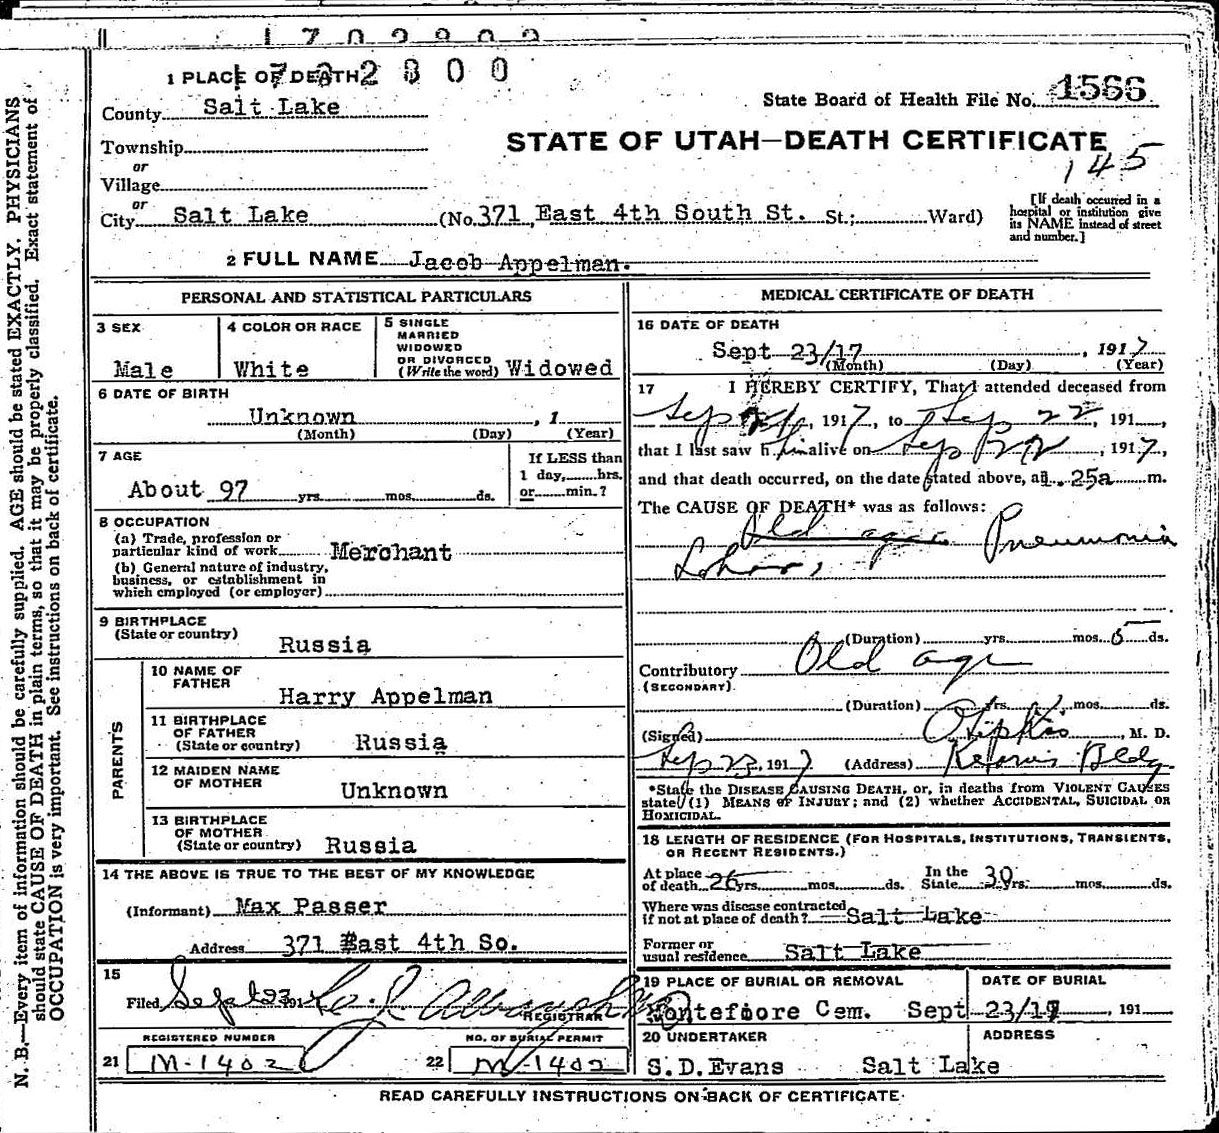 1 PLACE OF DEATH
County Salt Lake
State Board of Health File No. 1566
STATE OF UTAH—DEATH CERTIFICATE
145
Township
or
Village
or
City Salt Lake (No. 371 East 4th South St. St.; Ward)
[If death occurred in a
hospital or institution give
its NAME instead of street
and number.]
2 FULL NAME Jacob Appelman.
PERSONAL AND STATISTICAL PARTICULARS
3 SEX
Male
4 COLOR OR RACE
White
5 SINGLE
MARRIED
WIDOWED
OR DIVORCED
(Write the word) Widowed
6 DATE OF BIRTH
Unknown , 1
(Month) (Day) (Year)
7 AGE
About 97 yrs. mos. ds.
If LESS than
1 day, hrs.
or min.?
8 OCCUPATION
(a) Trade, profession or
particular kind of work Merchant
(b) General nature of industry,
business, or establishment in
which employed (or employer)
9 BIRTHPLACE
(State or country)
Russia
PARENTS
10 NAME OF
FATHER
Harry Appelman
11 BIRTHPLACE
OF FATHER
(State or country) Russia
12 MAIDEN NAME
OF MOTHER
Unknown
13 BIRTHPLACE
OF MOTHER
(State or country) Russia
14 THE ABOVE IS TRUE TO THE BEST OF MY KNOWLEDGE
(Informant) Max Passer
Address 371 East 4th So.
15
Filed Sept 23 191
REGISTRAR
REGISTERED NUMBER
21 M-1402
NO. OF BURIAL PERMIT
22 M-1402
MEDICAL CERTIFICATE OF DEATH
16 DATE OF DEATH
Sept 23/17 , 1917
(Month) (Day) (Year)
17 I HEREBY CERTIFY, That I attended deceased from
Sep , 1917, to Sep 22, 191 ,
that I last saw him alive on Sep 22, 1917,
and that death occurred, on the date stated above, at 1.25a m.
The CAUSE OF DEATH* was as follows:
Old age Pneumonia
Lobar,
(Duration) yrs. mos. 5 ds.
Contributory Old age
(SECONDARY)
(Duration) yrs. mos. ds.
(Signed) , M. D.
Sep 23, 1917 (Address) Bldg
*State the DISEASE CAUSING DEATH, or, in deaths from VIOLENT CAUSES
state (1) MEANS OF INJURY; and (2) whether ACCIDENTAL, SUICIDAL OR
HOMICIDAL.
18 LENGTH OF RESIDENCE (FOR HOSPITALS, INSTITUTIONS, TRANSIENTS,
OR RECENT RESIDENTS.)
At place
of death 26 yrs. mos. ds.
In the
State 30 yrs. mos. ds.
Where was disease contracted
if not at place of death? Salt Lake
Former or
usual residence Salt Lake
19 PLACE OF BURIAL OR REMOVAL
Montefiore Cem.
DATE OF BURIAL
Sept 23/17 , 191
20 UNDERTAKER
S.D.Evans
ADDRESS
Salt Lake
READ CAREFULLY INSTRUCTIONS ON BACK OF CERTIFICATE
N. B.—Every item of information should be carefully supplied. AGE should be stated EXACTLY. PHYSICIANS
should state CAUSE OF DEATH in plain terms, so that it may be properly classified. Exact statement of
OCCUPATION is very important. See instructions on back of certificate.